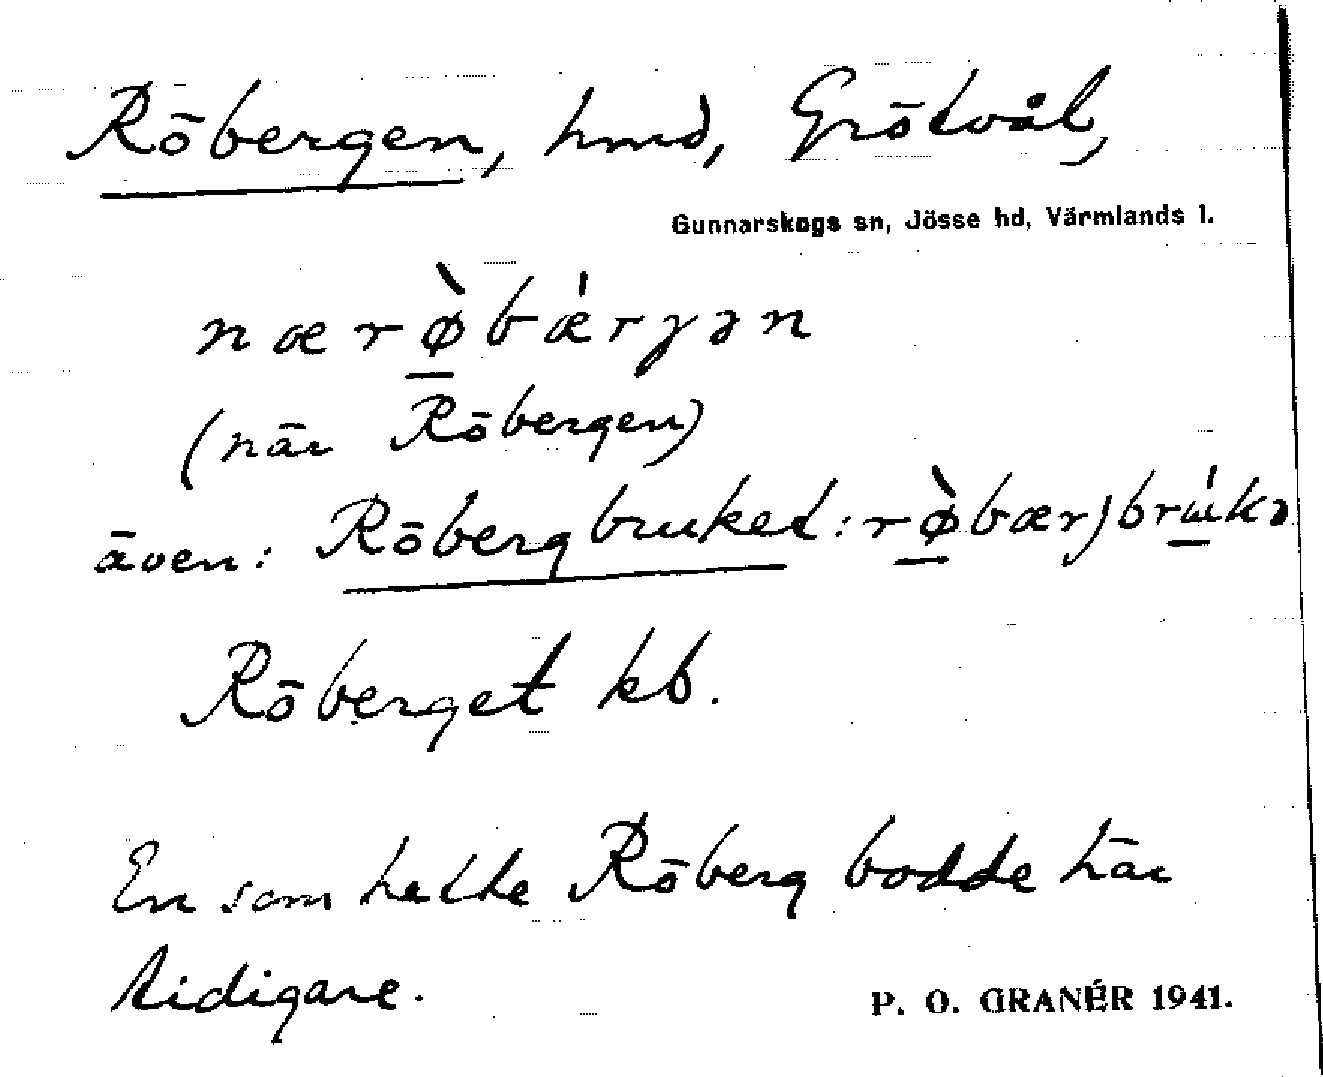 Röbergen, hmd, Grötvål,
Gunnarskogs sn, Jösse hd, Värmlands l.
nærø̲̀bæ̍rgən
(när Röbergen)
även: Röbergbruket: rø̲̀bærjbrɯ̲̍kə
Röberget kb.
En som hette Röberg bodde här
tidigare.
P. O. GRANÉR 1941.